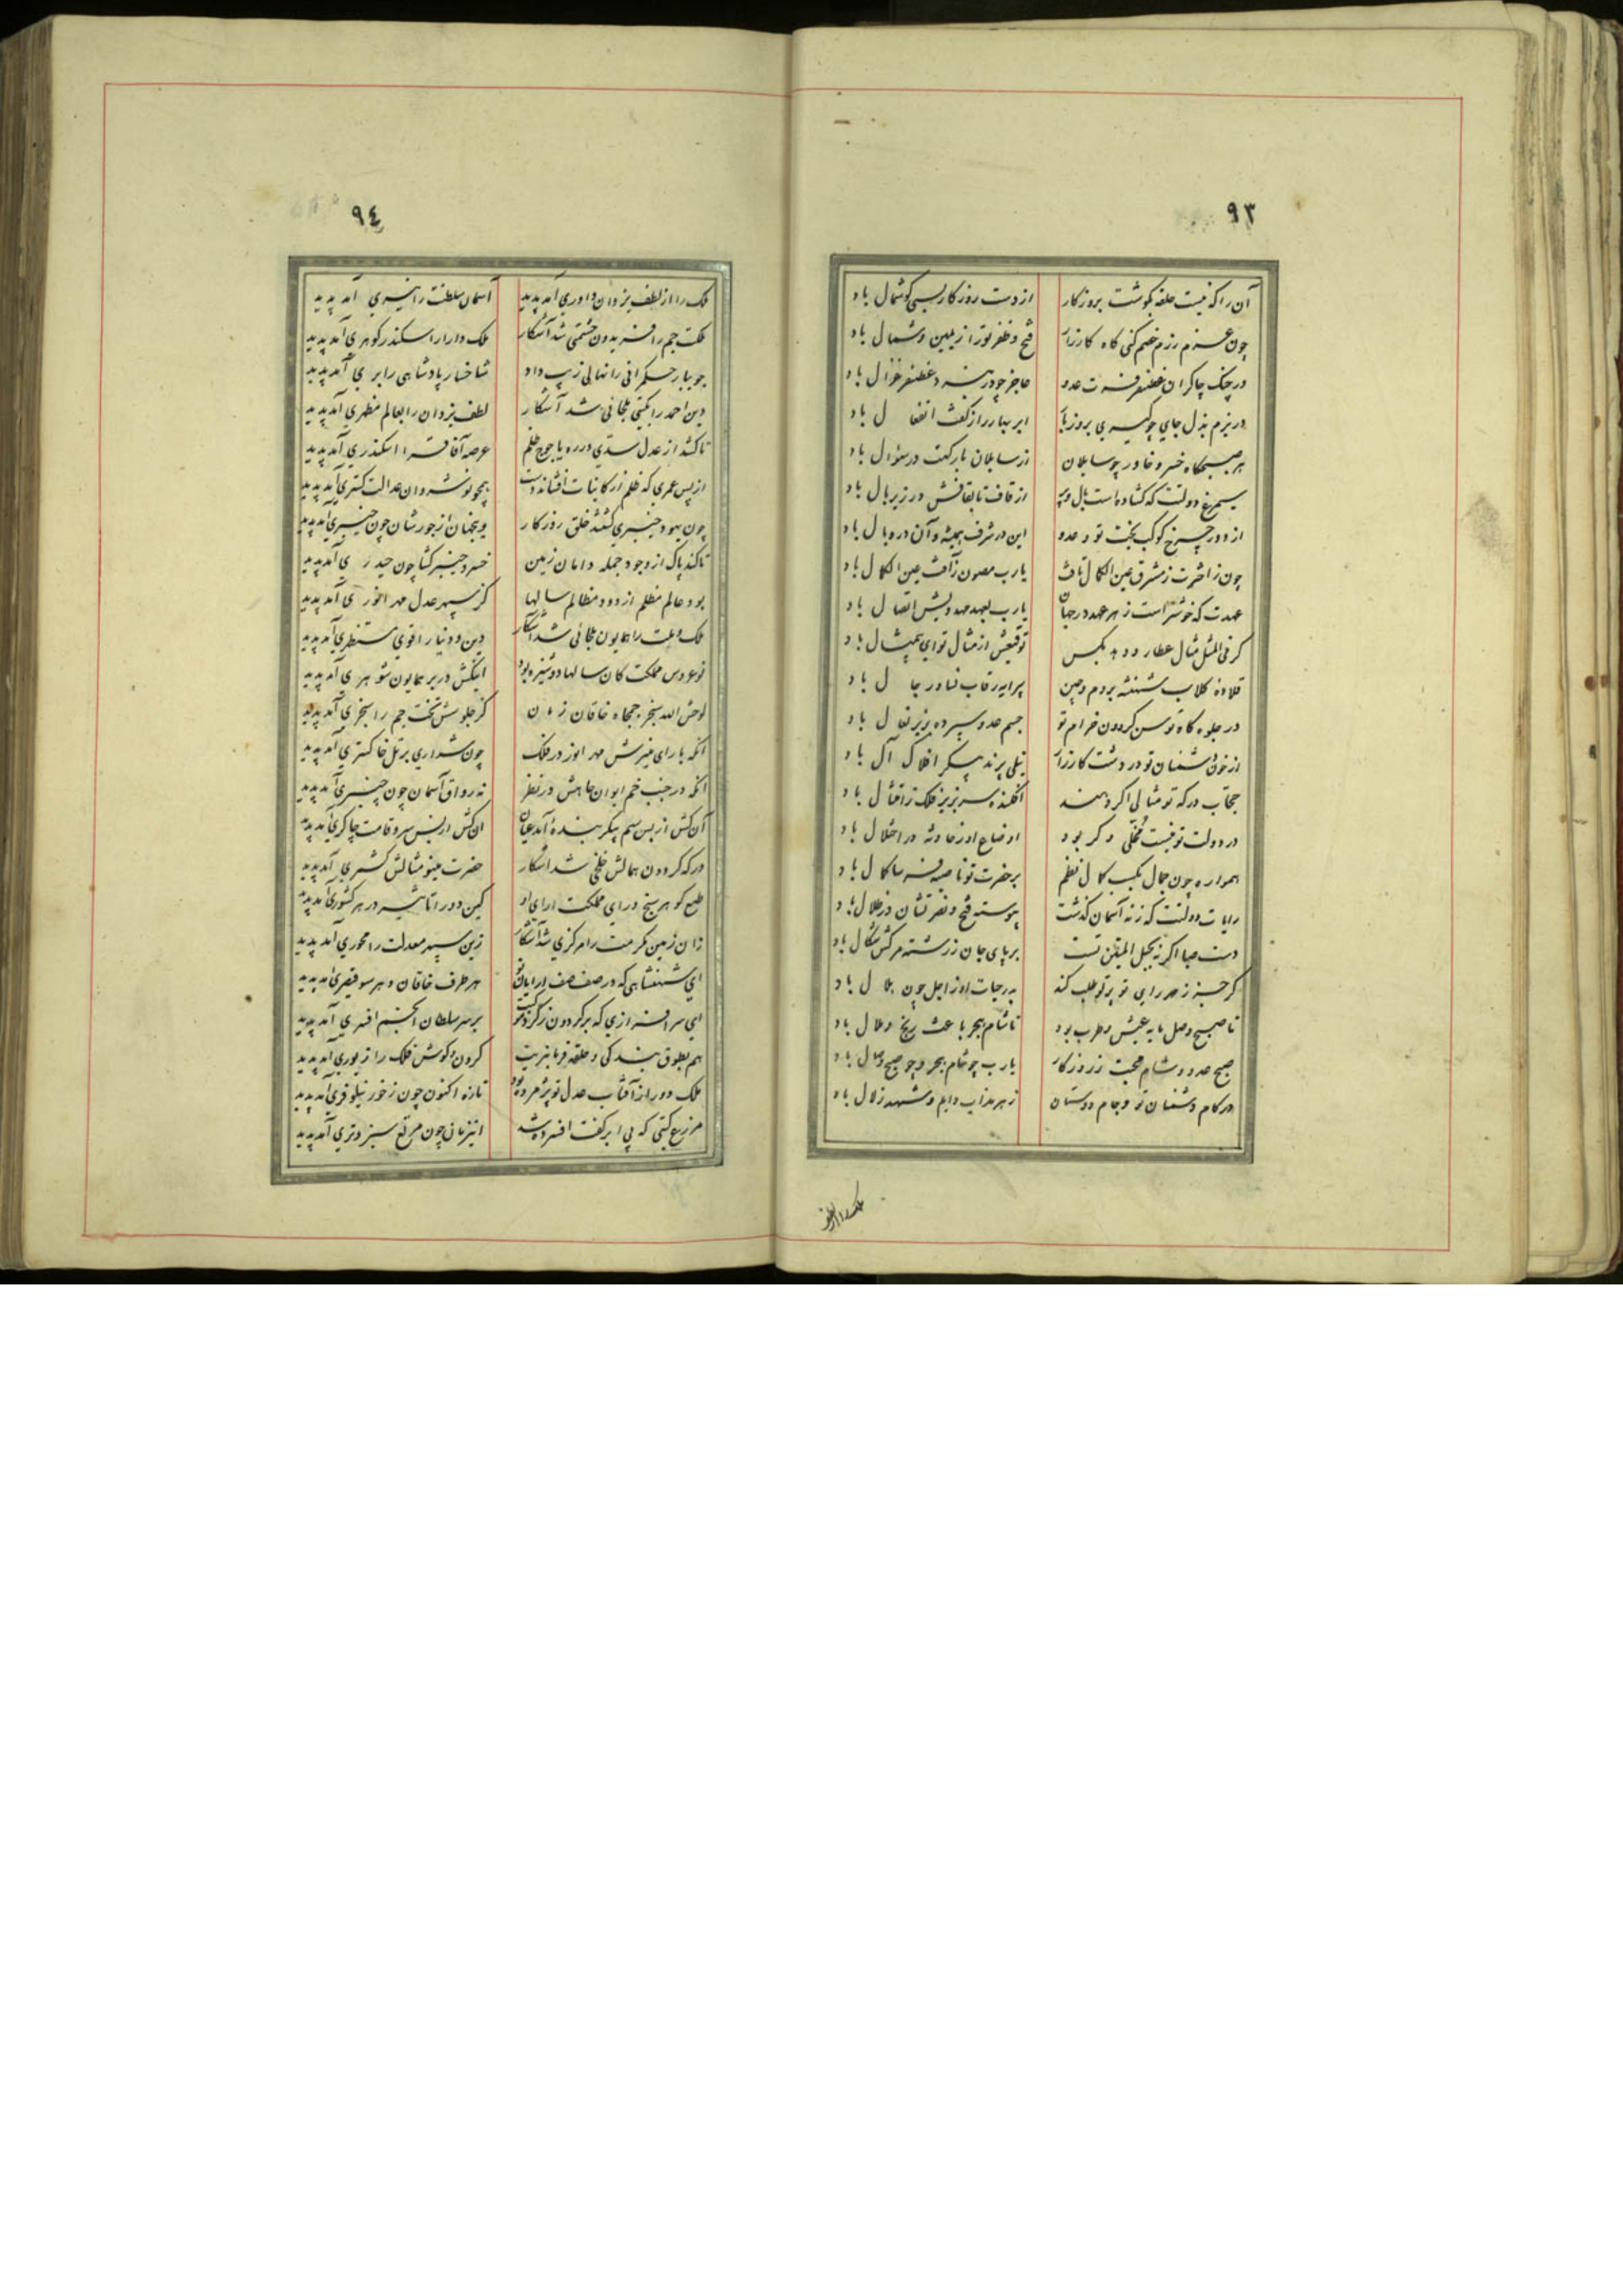 ٩٣
آن را که نیست حلقه بگوشت بروزکار از دست روزکار بسی کوشمال باد
چون عزم رزم خصم کنی کاه کارزار فتح و ظفر تو را ز یمین و شمال باد
در چنک چاکران غضنفر فرت عدو عاجز چو در بر غضنفر غزال باد
در بزم بذل جای چو کیری بروز بار ابر بهار را ز کفت انفعال باد
هر صبحکاه خسرو خاور چو سایلان از سایلان بارکهت در سؤال باد
سیمرغ دولتت که کشاده است بال و پر از قاف تا بقافش در زیر بال باد
از دور چرخ کوکب بخت تو و عدو این در شرف همیشه و آن در وبال باد
چون ز اخترت ز مشرق عین الکمال تافت یارب مصون ز آفت عین الکمال باد
عهدت که خوشتر است ز هر عهد در جهان یارب بعهد مهدویش اتصال باد
کر فی المثل مثال عطارد دهد بکس توقیعش از مثال تو ای بیمثال باد
قلاده کلاب شهنشه بروم و چین پیرایه رقاب نساء و رجال باد
در جلوه کاه توسن کردون خرام تو جسم عدو سپرده بزیر نعال باد
از خون دشمنان تو در دشت کارزار نیلی پرند پیکر افلاک آل باد
حجاب درکه تو مثالی اکر دهند افکنده سر بزیر فلک ز امتثال باد
در دولت تو نیست مخلی و کر بود اوضاع او ز حادثه در اختلال باد
همواره چون جمال بکسب کمال نظم بر حضرت تو ناصیه فرسا کمال باد
رایات دولتت که ز نه آسمان کذشت پیوسته فتح و نصرتشان در ظلال باد
دست صبا اکر نه بحبل المتین تست بر پای جان ز رشته مرکش شکال باد
کر جز ز مهر رای تو پرتو طلب کند بدر حیات او ز اجل چون هلال باد
تا صبح وصل مایه عیش و طرب بود تا شام هجر باعث رنج و ملال باد
صبح عدو و شام محبت ز روزکار یارب چو شام هجر و چو صبح وصال باد
در کام دشمنان تو و جام دوستان زهر مذاب دایم و شهد زلال باد
ملک را از لطف
٩٤
ملک را از لطف یزدان داوری آمد پدید آسمان سلطنت را نیری آمد پدید
ملکت جم را فریدون حشمتی شد آشکار ملک دارا را سکندر کوهری آمد پدید
جویبار حکمرانی را نهالی زیب داد شاخسار پادشاهی را بری آمد پدید
دین احمد را بکیتی ملجائی شد آشکار لطف یزدان را بعالم مظهری آمد پدید
تا کشد از عدل سدی در ره یاجوج ظلم عرصه آفاق را اسکندری آمد پدید
از پس عمری که ظلم از کاینات افشاند دست همچو نوشروان عدالت کستری آمد پدید
چون یهود خیبری کشتند خلق روزکار وین جهان از جورشان چون خیبری آمد پدید
تا کند پاک از وجود جمله دامان زمین خسرو خیبر کشا چون حیدری آمد پدید
بود عالم مظلم از دود مظالم سالها کز سپهر عدل مهر انوری آمد پدید
ملک و ملت را همایون ملجائی شد آشکار دین و دنیا را قوی مستظهری آمد پدید
نوعروس مملکت کان سالها دوشیزه بود اینکش در بر همایون شوهری آمد پدید
لوحش الله سنجر جمجاه خاقان زمان کز جلوسش تخت جم را سنجری آمد پدید
آنکه با رای منیرش مهر انور در فلک چون شراری بر تل خاکستری آمد پدید
آنکه در جنب خم ایوان جاهش در نظر نه رواق آسمان چون چنبری آمد پدید
آن کش از بس سیم پیکر بنده آمد عیان ان کش از بس سرو قامت چاکری آمد پدید
درکه کردون همالش خلخی شد آشکار حضرت مینو مثالش کشمری آمد پدید
طبع کوهر سنج و رای مملکت ارای او کین دو را تاثیر در هر کشوری آمد پدید
زان زمین مکرمت را مرکزی شد آشکار زین سپهر معدلت را محوری آمد پدید
ای شهنشاهی که در صف صف ارایان تو هر طرف خاقان و هر سو قیصری آمد پدید
ای سرافرازی که بر کردون ز کرد موکبت بر سر سلطان انجم افسری آمد پدید
هم بطوق بندکی و حلقه فرمانبریت کردن و کوش فلک را زیوری آمد پدید
ملک دور از آفتاب عدل تو پژمرده بود تازه اکنون چون ز خور نیلوفری آمد پدید
مزرع کیتی که بی ابر کفت افسرده شد اینزمان چون مرتع سبز و تری آمد پدید